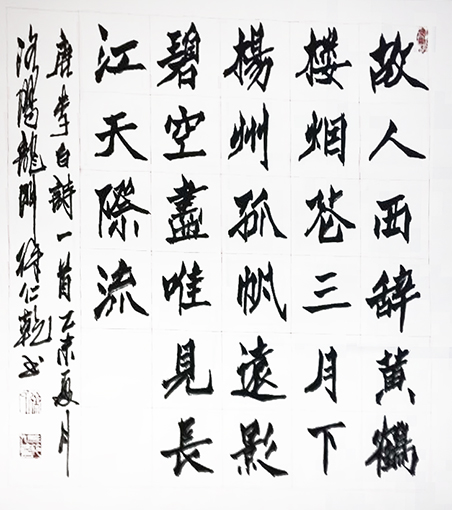 故人西辞黄鶴
楼烟花三月下
楊州孤帆遠影
碧空盡唯見長
江天際流
唐李白詩一首乙未夏月
洛陽龍門徐仁乾书